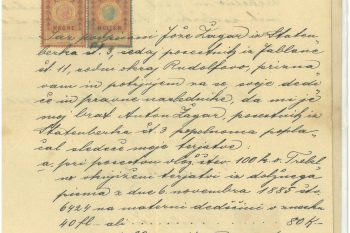 KRONE HELLER
Jaz podpisani Jože Žagar iz Staten-
berka št. 3, sedaj posestnik iz Jablanc
št. 11, sodni okraj Rudolfovo, prizna-
vam in potrjujem na se, svoje dedi-
če in pravne naslednike, da mi je
moj brat Anton Žagar, posestnik iz
Statenberka št. 3 popolnoma popla-
čal sledeče moje terjatve:
a, pri posestvu vlož. štev. 100 k. o. Trebel-
no vknjiženi terjatvi iz dolžnega
pisma z dne 6. novembra 1885 štv.
6424 na materni dedščini v znesku
40 fl - ali 80 K -